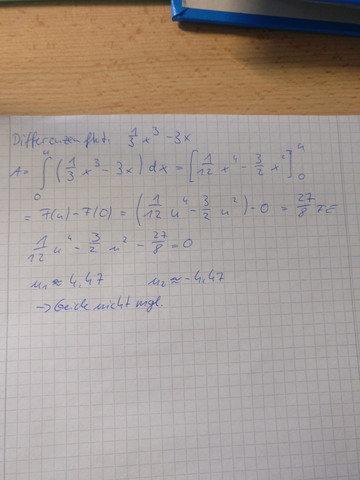 Differenzenfkt: 1/3 x³ - 3x
A = ∫₀ᵘ (1/3 x³ - 3x) dx = [1/12 x⁴ - 3/2 x²]₀ᵘ
= F(u) - F(0) = (1/12 u⁴ - 3/2 u²) - 0 = 27/8 FE
1/12 u⁴ - 3/2 u² - 27/8 = 0
u₁ ≈ 4,47 u₂ ≈ -4,47
→ beide nicht mgl.